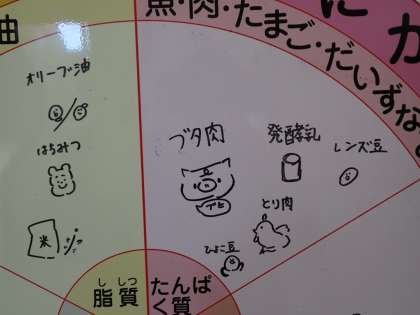 油
魚・肉・たまご・だいずな
に
か
オリーブ油
はちみつ
米
ブタ肉
発酵乳
レンズ豆
とり肉
ひよこ豆
ししつ
脂質
たんぱ
く質